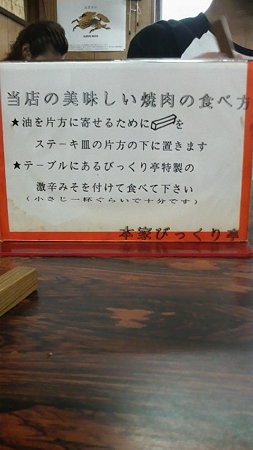 当店の美味しい焼肉の食べ方
★油を片方に寄せるために を
ステーキ皿の片方の下に置きます
★テーブルにあるびっくり亭特製の
激辛みそを付けて食べて下さい
(小さじ一杯ぐらいで十分です)
本家びっくり亭